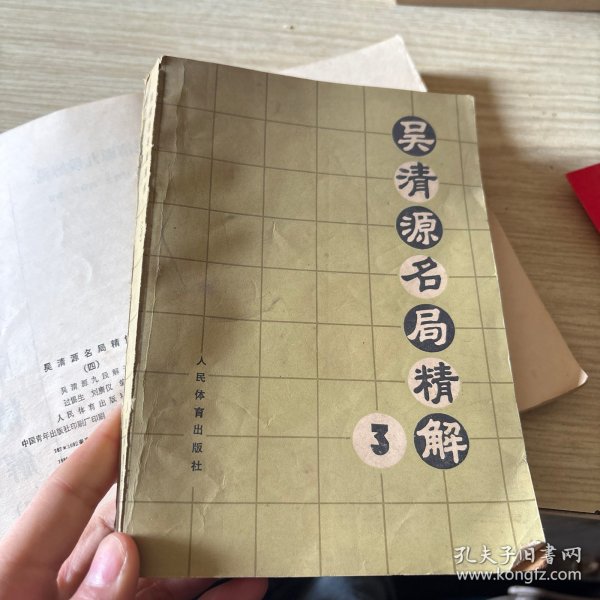 吴清源名局精解
3
人民体育出版社
吴清源名局精
(四)
吴清源九段解
过惕生 刘惠仪
人民体育出版社
中国青年出版社印刷厂印刷
孔夫子旧书网
www.kongfz.com